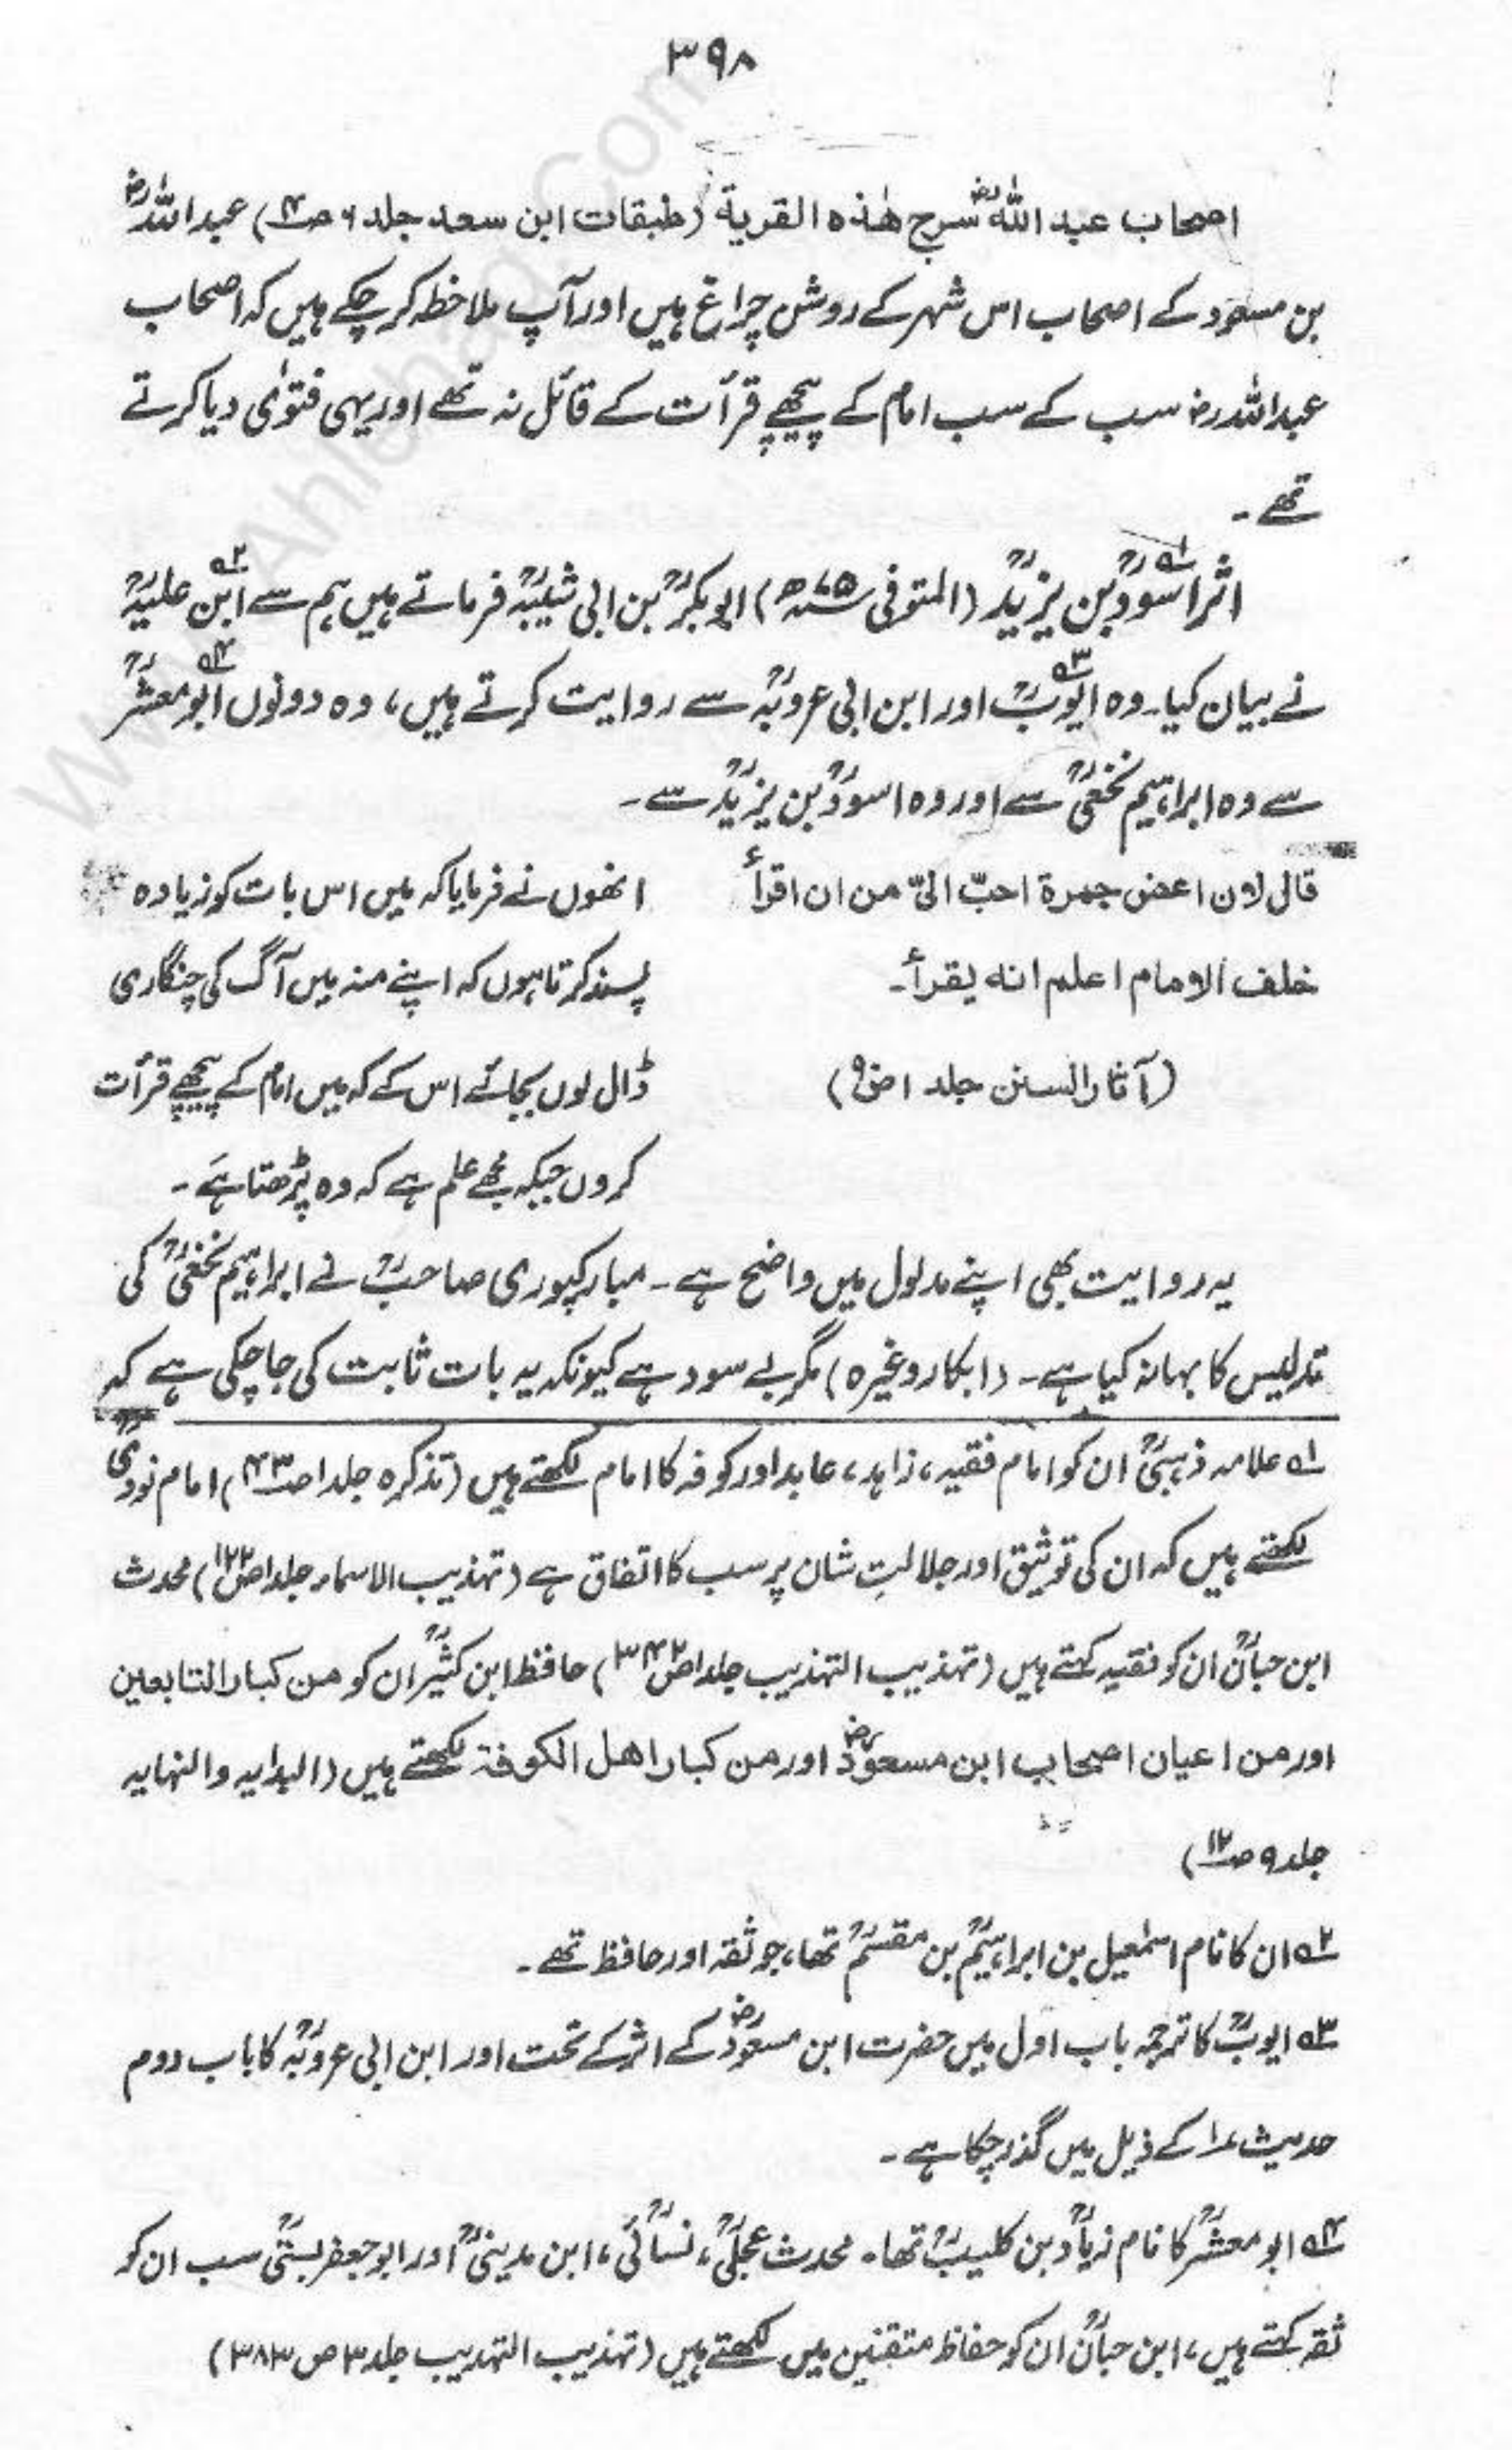 ۳۹۸
اصحاب عبد اللهؓ سرج هٰذه القرية (طبقات ابن سعد جلد ۶ ص۴) عبداللہؓ
بن مسعود کے اصحاب اس شہر کے روشن چراغ ہیں اور آپ ملاحظہ کر چکے ہیں کہ اصحاب
عبداللہ رض سب کے سب امام کے پیچھے قرأت کے قائل نہ تھے اور یہی فتوٰی دیا کرتے
تھے۔
اثر اسودؒ بن یزیدؒ (المتوفی ۷۵ھ) ابوبکرؒ بن ابی شیبہؒ فرماتے ہیں ہم سے ابن علیہؒ
نے بیان کیا۔ وہ ایوبؒ اور ابن ابی عروبہؒ سے روایت کرتے ہیں، وہ دونوں ابو معشرؒ
سے وہ ابراہیم نخعیؒ سے اور وہ اسودؒ بن یزیدؒ سے۔
قال لان اعض جمرة احبّ الیّ من ان اقرأ
خلف الامام اعلم انه یقرأ۔
(آثار السنن جلد ۱ ص۹)
انھوں نے فرمایا کہ میں اس بات کو زیادہ
پسند کرتا ہوں کہ اپنے منہ میں آگ کی چنگاری
ڈال لوں بجائے اس کے کہ میں امام کے پیچھے قرأت
کروں جبکہ مجھے علم ہے کہ وہ پڑھتا ہے۔
یہ روایت بھی اپنے مدلول میں واضح ہے۔ مبارکپوری صاحبؒ نے ابراہیم نخعیؒ کی
تدلیس کا بہانہ کیا ہے۔ (ابکار وغیرہ) مگر بے سود ہے کیونکہ یہ بات ثابت کی جا چکی ہے کہ
۱ علامہ ذہبیؒ ان کو امام فقیہ، زاہد، عابد اور کوفہ کا امام لکھتے ہیں (تذکرہ جلد ۱ ص۴۳) امام نوویؒ
لکھتے ہیں کہ ان کی توثیق اور جلالتِ شان پر سب کا اتفاق ہے (تہذیب الاسماء جلد ۱ ص۱۲۲) محدث
ابن حبانؒ ان کو فقیہ کہتے ہیں (تہذیب التہذیب جلد ۱ ص۳۴۲) حافظ ابن کثیرؒ ان کو من کبار التابعین
اور من اعیان اصحاب ابن مسعودؓ اور من کبار اهل الکوفة لکھتے ہیں (البدایہ والنہایہ
جلد ۹ ص۱۲)
۲ ان کا نام اسمٰعیل بن ابراہیمؒ بن مقسمؒ تھا، جو ثقہ اور حافظ تھے۔
۳ ایوبؒ کا ترجمہ باب اول میں حضرت ابن مسعودؓ کے اثر کے تحت اور ابن ابی عروبہؒ کا باب دوم
حدیث ۱ کے ذیل میں گذر چکا ہے۔
۴ ابو معشرؒ کا نام زیادؒ بن کلیبؒ تھا۔ محدث عجلیؒ، نسائیؒ، ابن مدینیؒ اور ابو جعفر بستیؒ سب ان کو
ثقہ کہتے ہیں، ابن حبانؒ ان کو حفاظ متقنین میں لکھتے ہیں (تہذیب التہذیب جلد ۳ ص ۳۸۳)